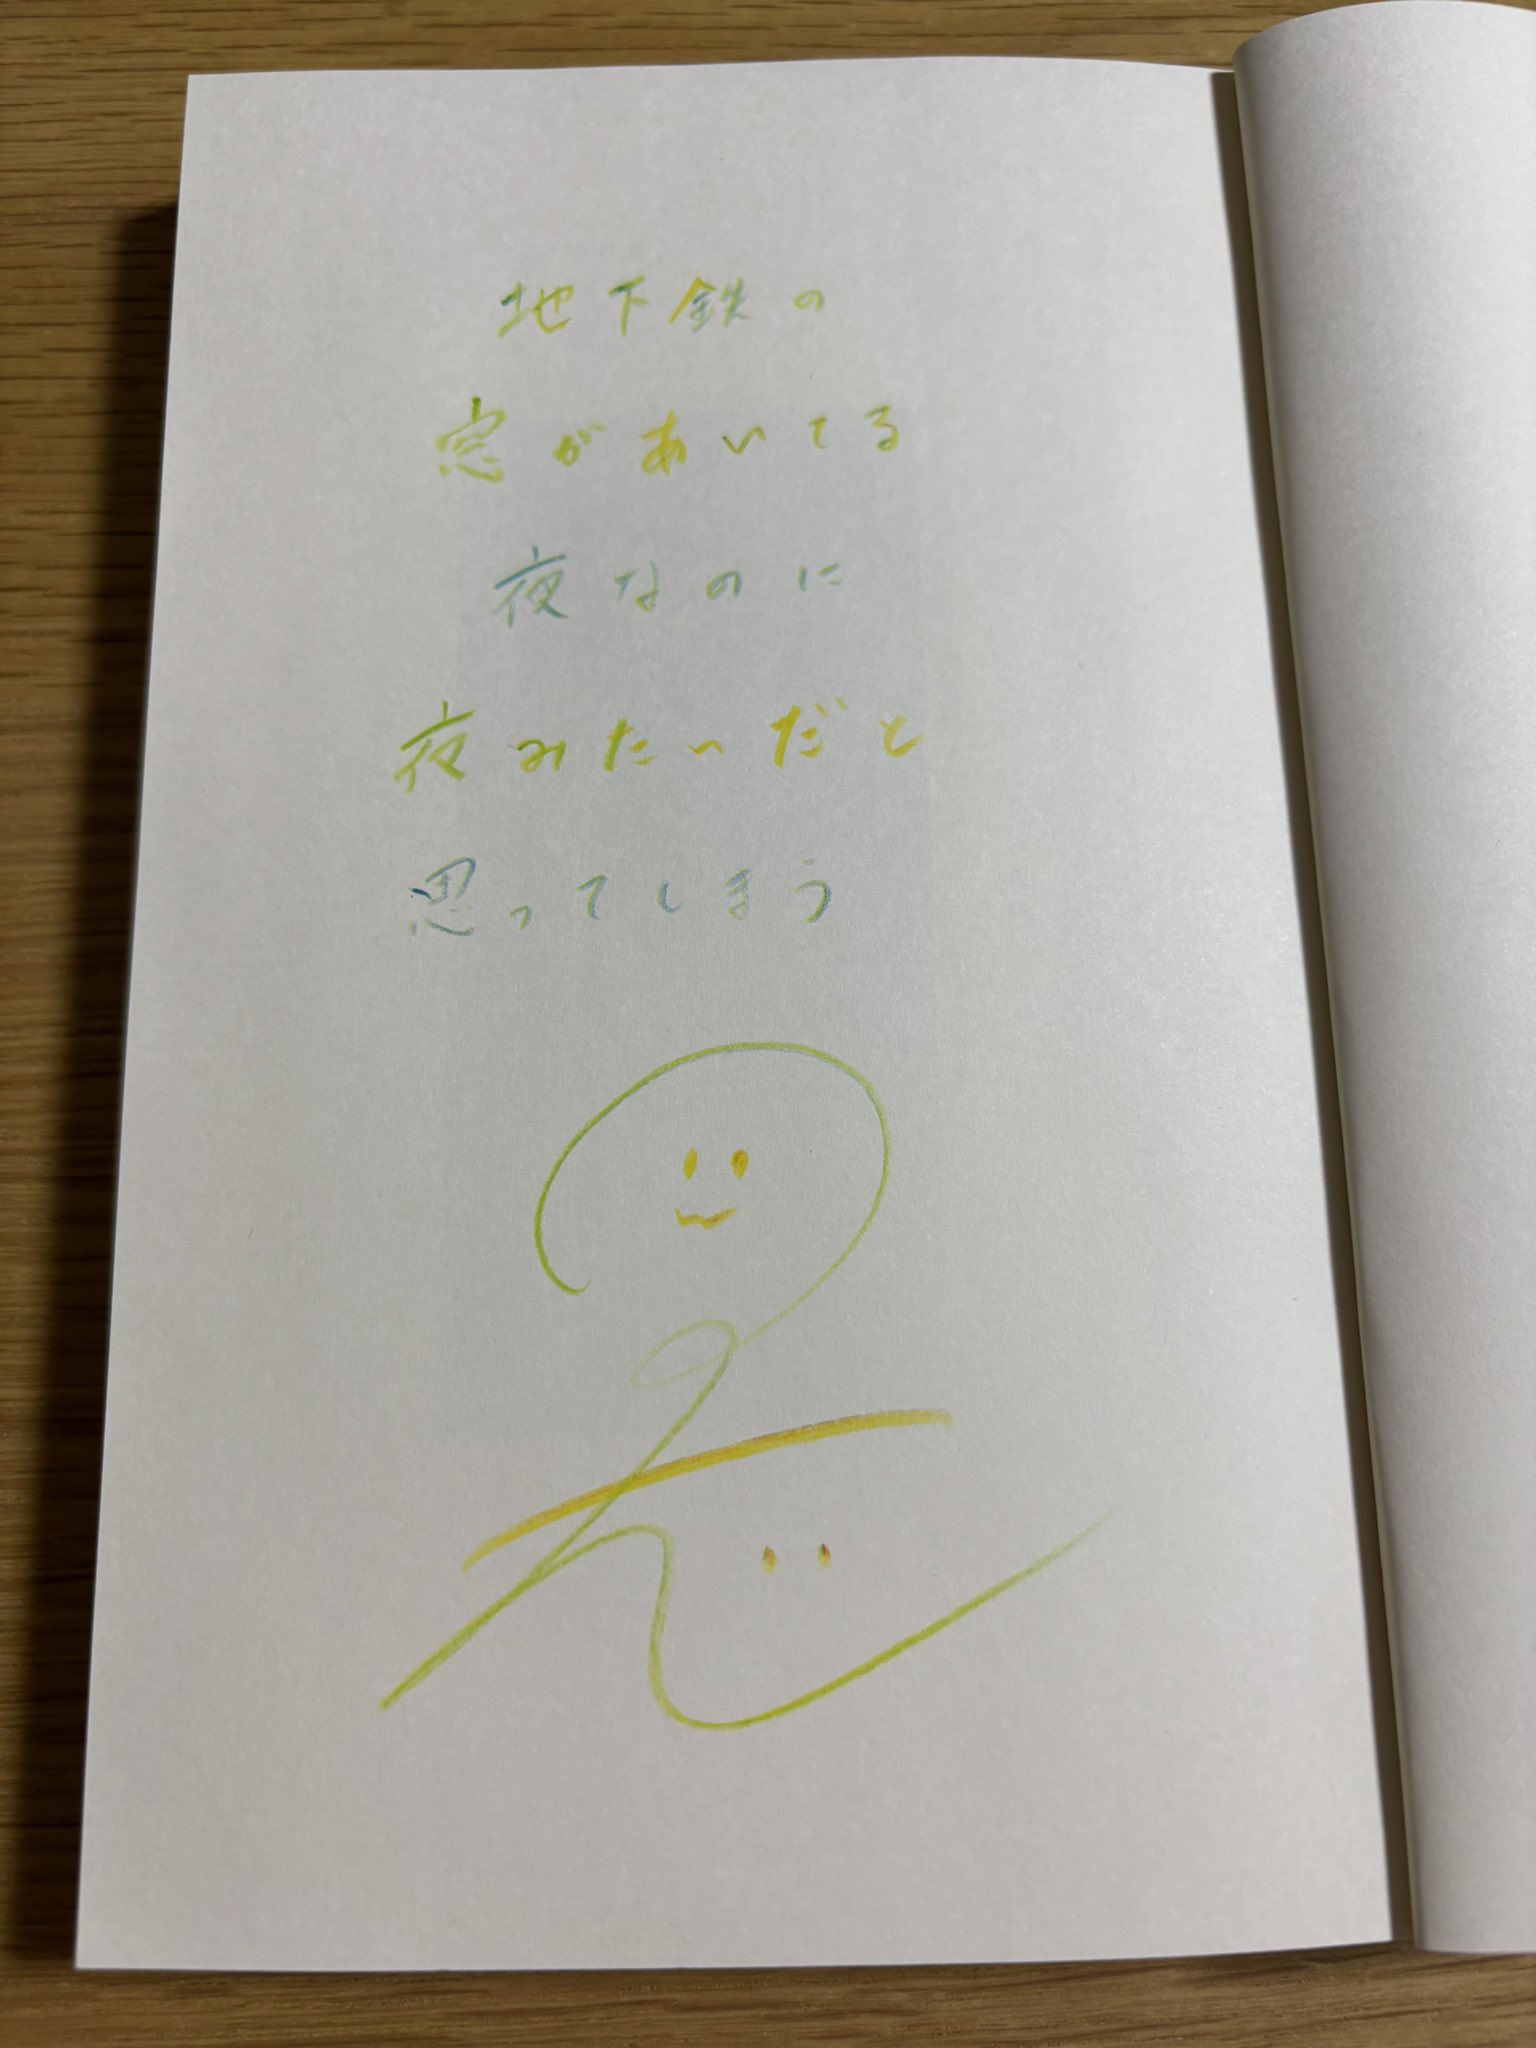 地下鉄の
窓があいてる
夜なのに
夜みたいだと
思ってしまう